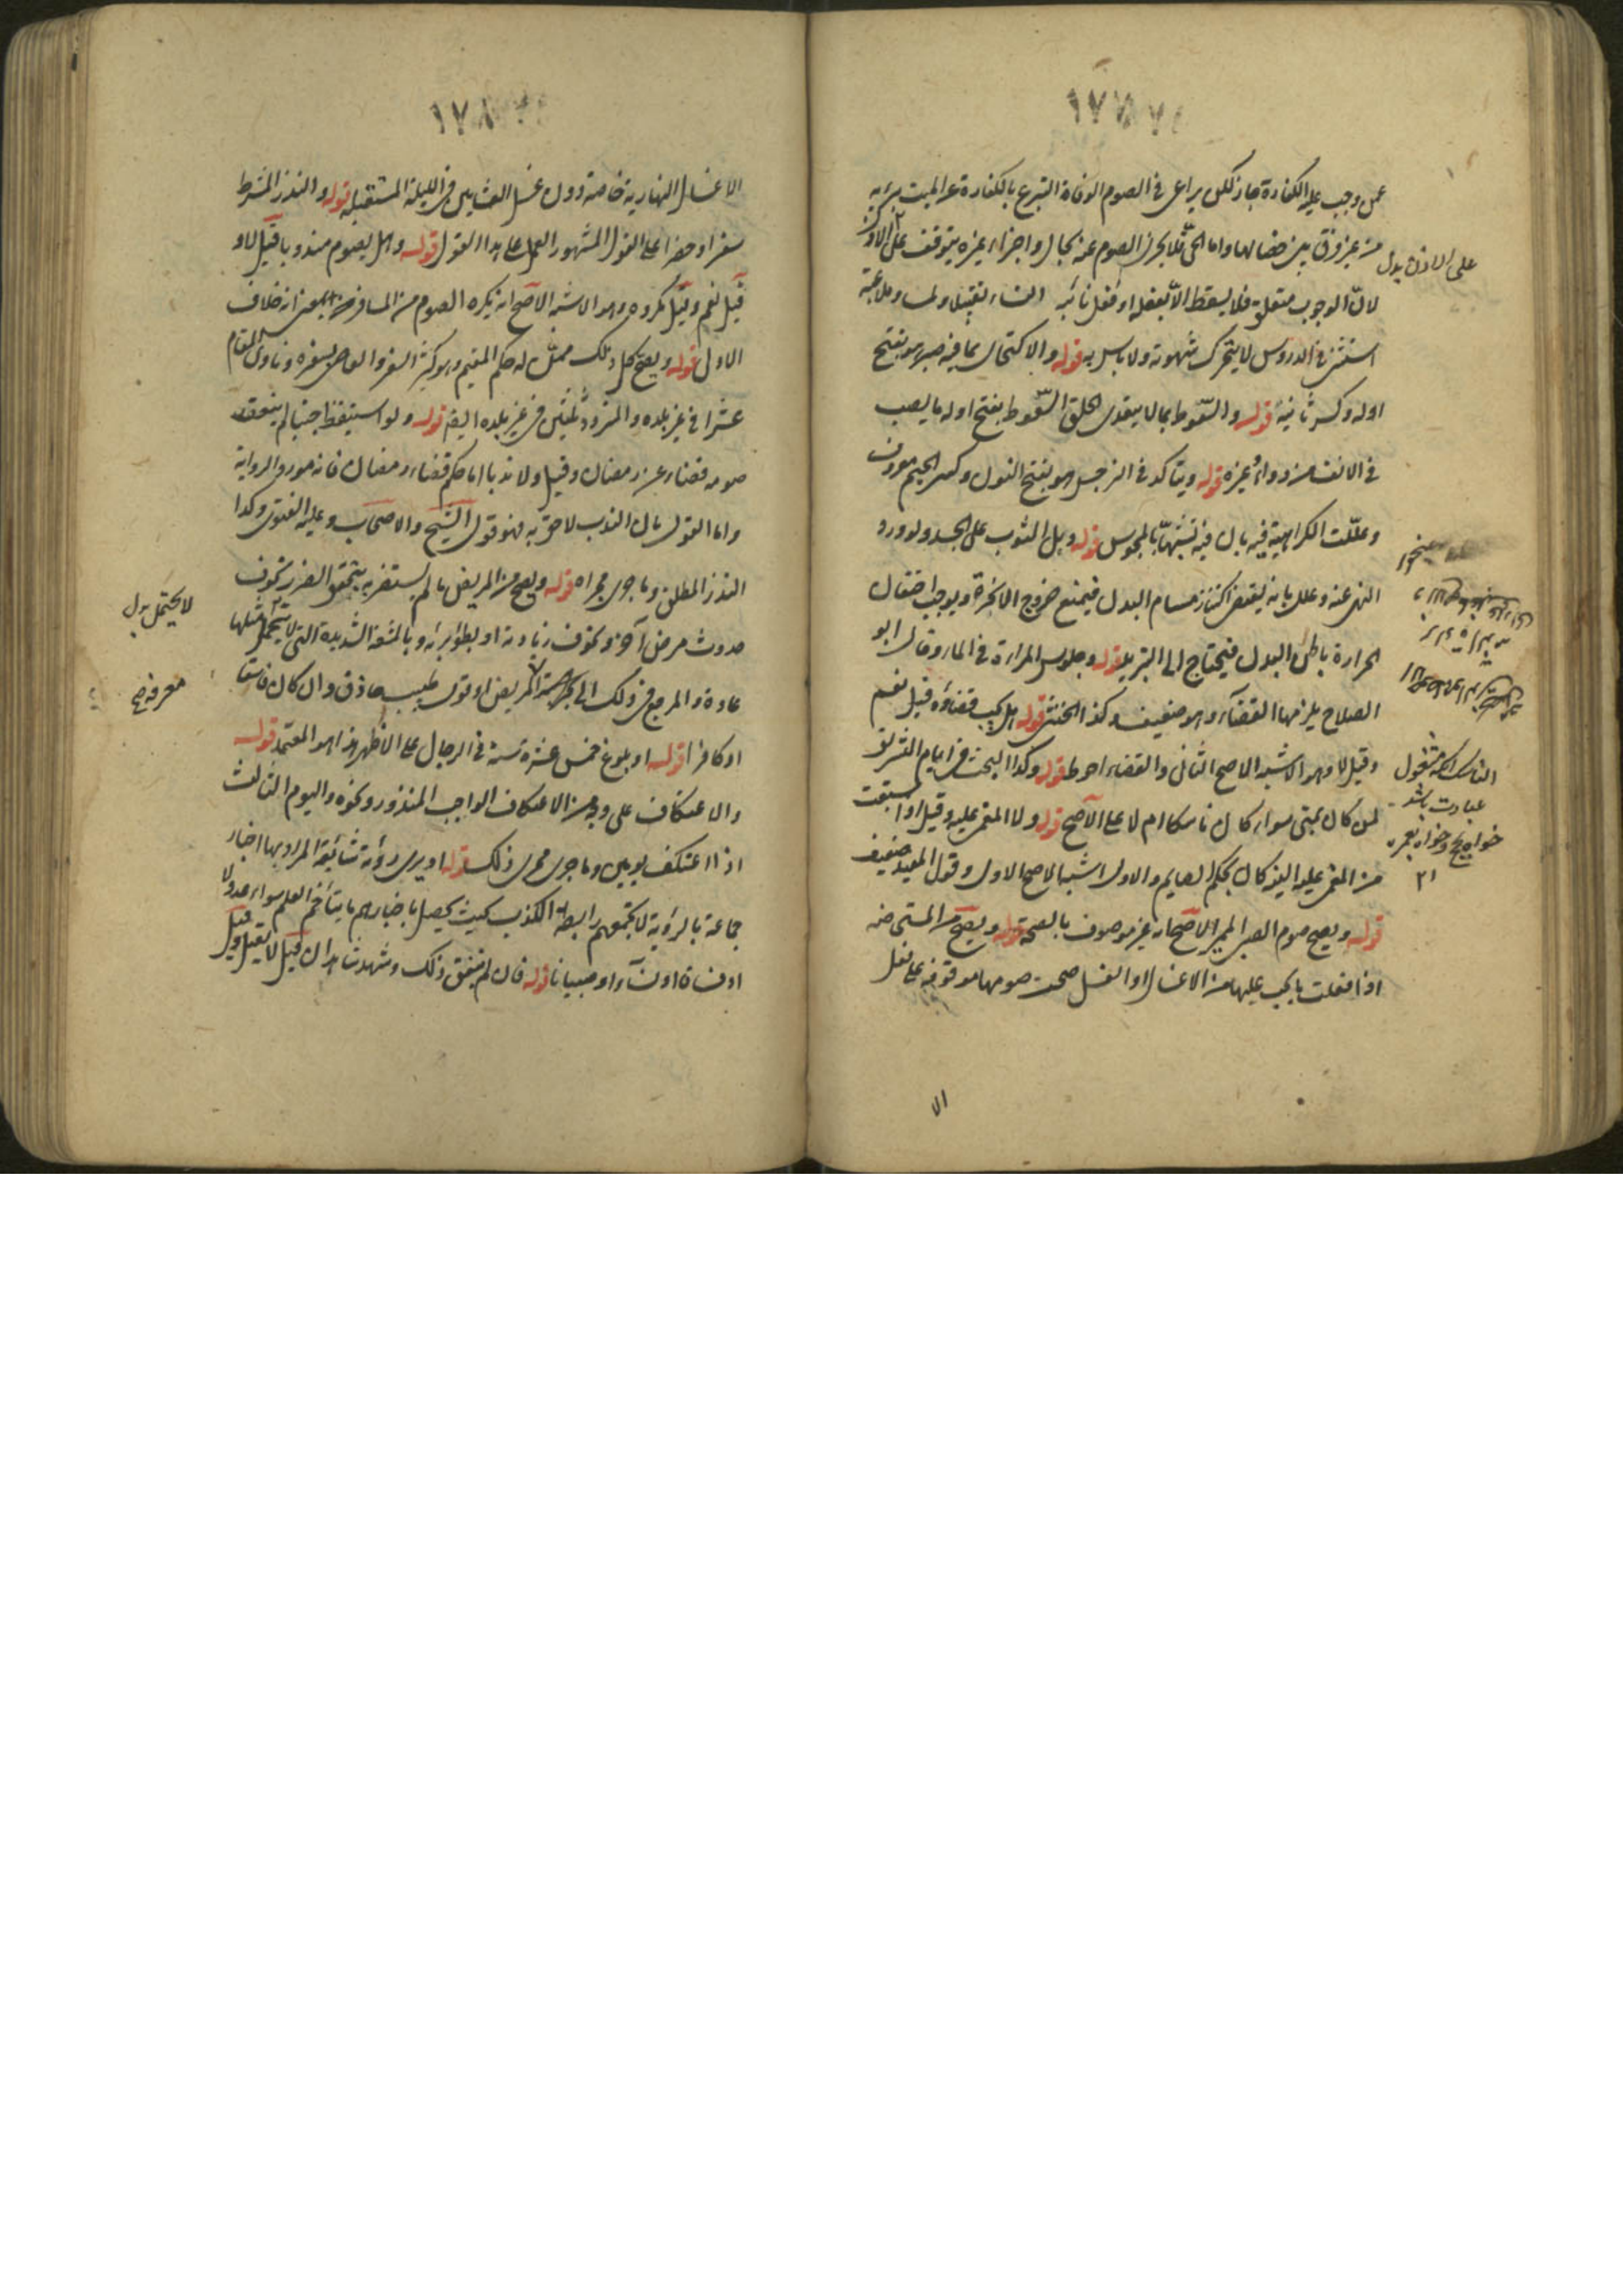 ١٧٧
عمن وجب عليه الكفارة جاز لكن يراعى في الصوم الوفاة التبرع بالكفارة عن الميت يبرئه
من غير فرق بين خصالها واما الحي فلا يجزي الصوم عنه بحال واجزاء غيره يتوقف على الاذن
على الاذن بدل
لان الوجوب متعلق فلا يسقط الا بفعله او فعل نائبه النساء تقبيلا ولمسا وملاعبة
استثنى في الدروس من لا يتحرك شهوته ولا باس به قوله والاكتحال بما فيه صبر هو بفتح
اوله وكسر ثانيه قوله والسعوط بما لا يتعدى الحلق السعوط بفتح اوله ما يصب
في الانف من دواء وغيره قوله ويتاكد في النرجس هو بفتح النون وكسر الجيم معروف
وعللت الكراهية فيه بان فيه تشبها بالمجوس قوله وبل الثوب على الجسد ولورود
النهي عنه وعلل بانه يقتضي اكتناز مسام البدن فيمنع خروج الابخرة ويوجب احتقان
الحرارة باطن البدن فيحتاج الى التبريد قوله وجلوس المراة في الماء وقال ابو
الصلاح يلزمها القضاء وهو ضعيف وكذا الخنثى قوله هل يجب قضاؤه قيل نعم
وقيل لا وهو الاشبه الاصح الثاني والقضاء احوط قوله وكذا البحث في ايام التشريق
لمن كان بمنى سواء كان ناسكا ام لا على الاصح قوله ولا المغمى عليه وقيل اذا سبقت
من المغمى عليه النية كان بحكم الصايم والاول اشبه الاصح الاول وقول المفيد ضعيف
قوله ويصح صوم الصبي المميز الاصح انه غير موصوف بالصحة قوله ويصح من المستحاضة
اذا فعلت ما يجب عليها من الاغسال او الغسل صحت صومها موقوفة على فعل
الناسك آنكه مشغول
عبادت باشد
خواه بحج وخواه بعمره
١٢
الا
١٧٨
الاغسال النهارية خاصة دون غسل العشايين في الليلة المستقبلة قوله والنذر المشروط
سفرا وحضرا على القول المشهور العمل على هذا القول قوله وهل يصوم مندوبا قيل لا و
قيل نعم وقيل يكره وهو الاشبه الاصح انه يكره الصوم من المسافر بمعنى انه خلاف
الاول قوله ويصح كل ذلك ممن له حكم المقيم وهو كثير السفر والعاصي بسفره وناوي المقام
عشرا في غير بلده والمتردد ثلثين في غير بلده ايضا قوله ولو استيقظ جنبا لم ينعقد
صومه قضاء عن رمضان وقيل ولا ندبا اما حكم قضاء رمضان فانه مورد الرواية
واما القول بان الندب لاحق به فهو قول الشيخ والاصحاب وعليه الفتوى وكذا
النذر المطلق وما جرى مجراه قوله ويصح من المريض ما لم يستضر به يتحقق الضرر بخوف
حدوث مرض آخر وبخوف زيادته او بطؤ برئه وبالمشقة الشديدة التي لا يتحمل مثلها
لا يحتمل بدل
عادة والمرجع في ذلك الى المريض او قول طبيب حاذق وان كان فاسقا
معرفة صح
او كافرا قوله او بلوغ خمس عشرة سنة في الرجال على الاظهر هذا هو المعتمد قوله
والاعتكاف على وجه من الاعتكاف الواجب المنذور ونحوه واليوم الثالث
اذا اعتكف يومين وما جرى مجرى ذلك قوله او يرى رؤية شائعة المراد بها اخبار
جماعة بالرؤية لا يجتمعهم رابطة الكذب بحيث يحصل باخبارهم ما يتاخم العلم سواء عدولا
او فساقا او نساء او صبيانا قوله فان لم يتفق ذلك وشهد شاهدان قيل لا يقبل وقيل